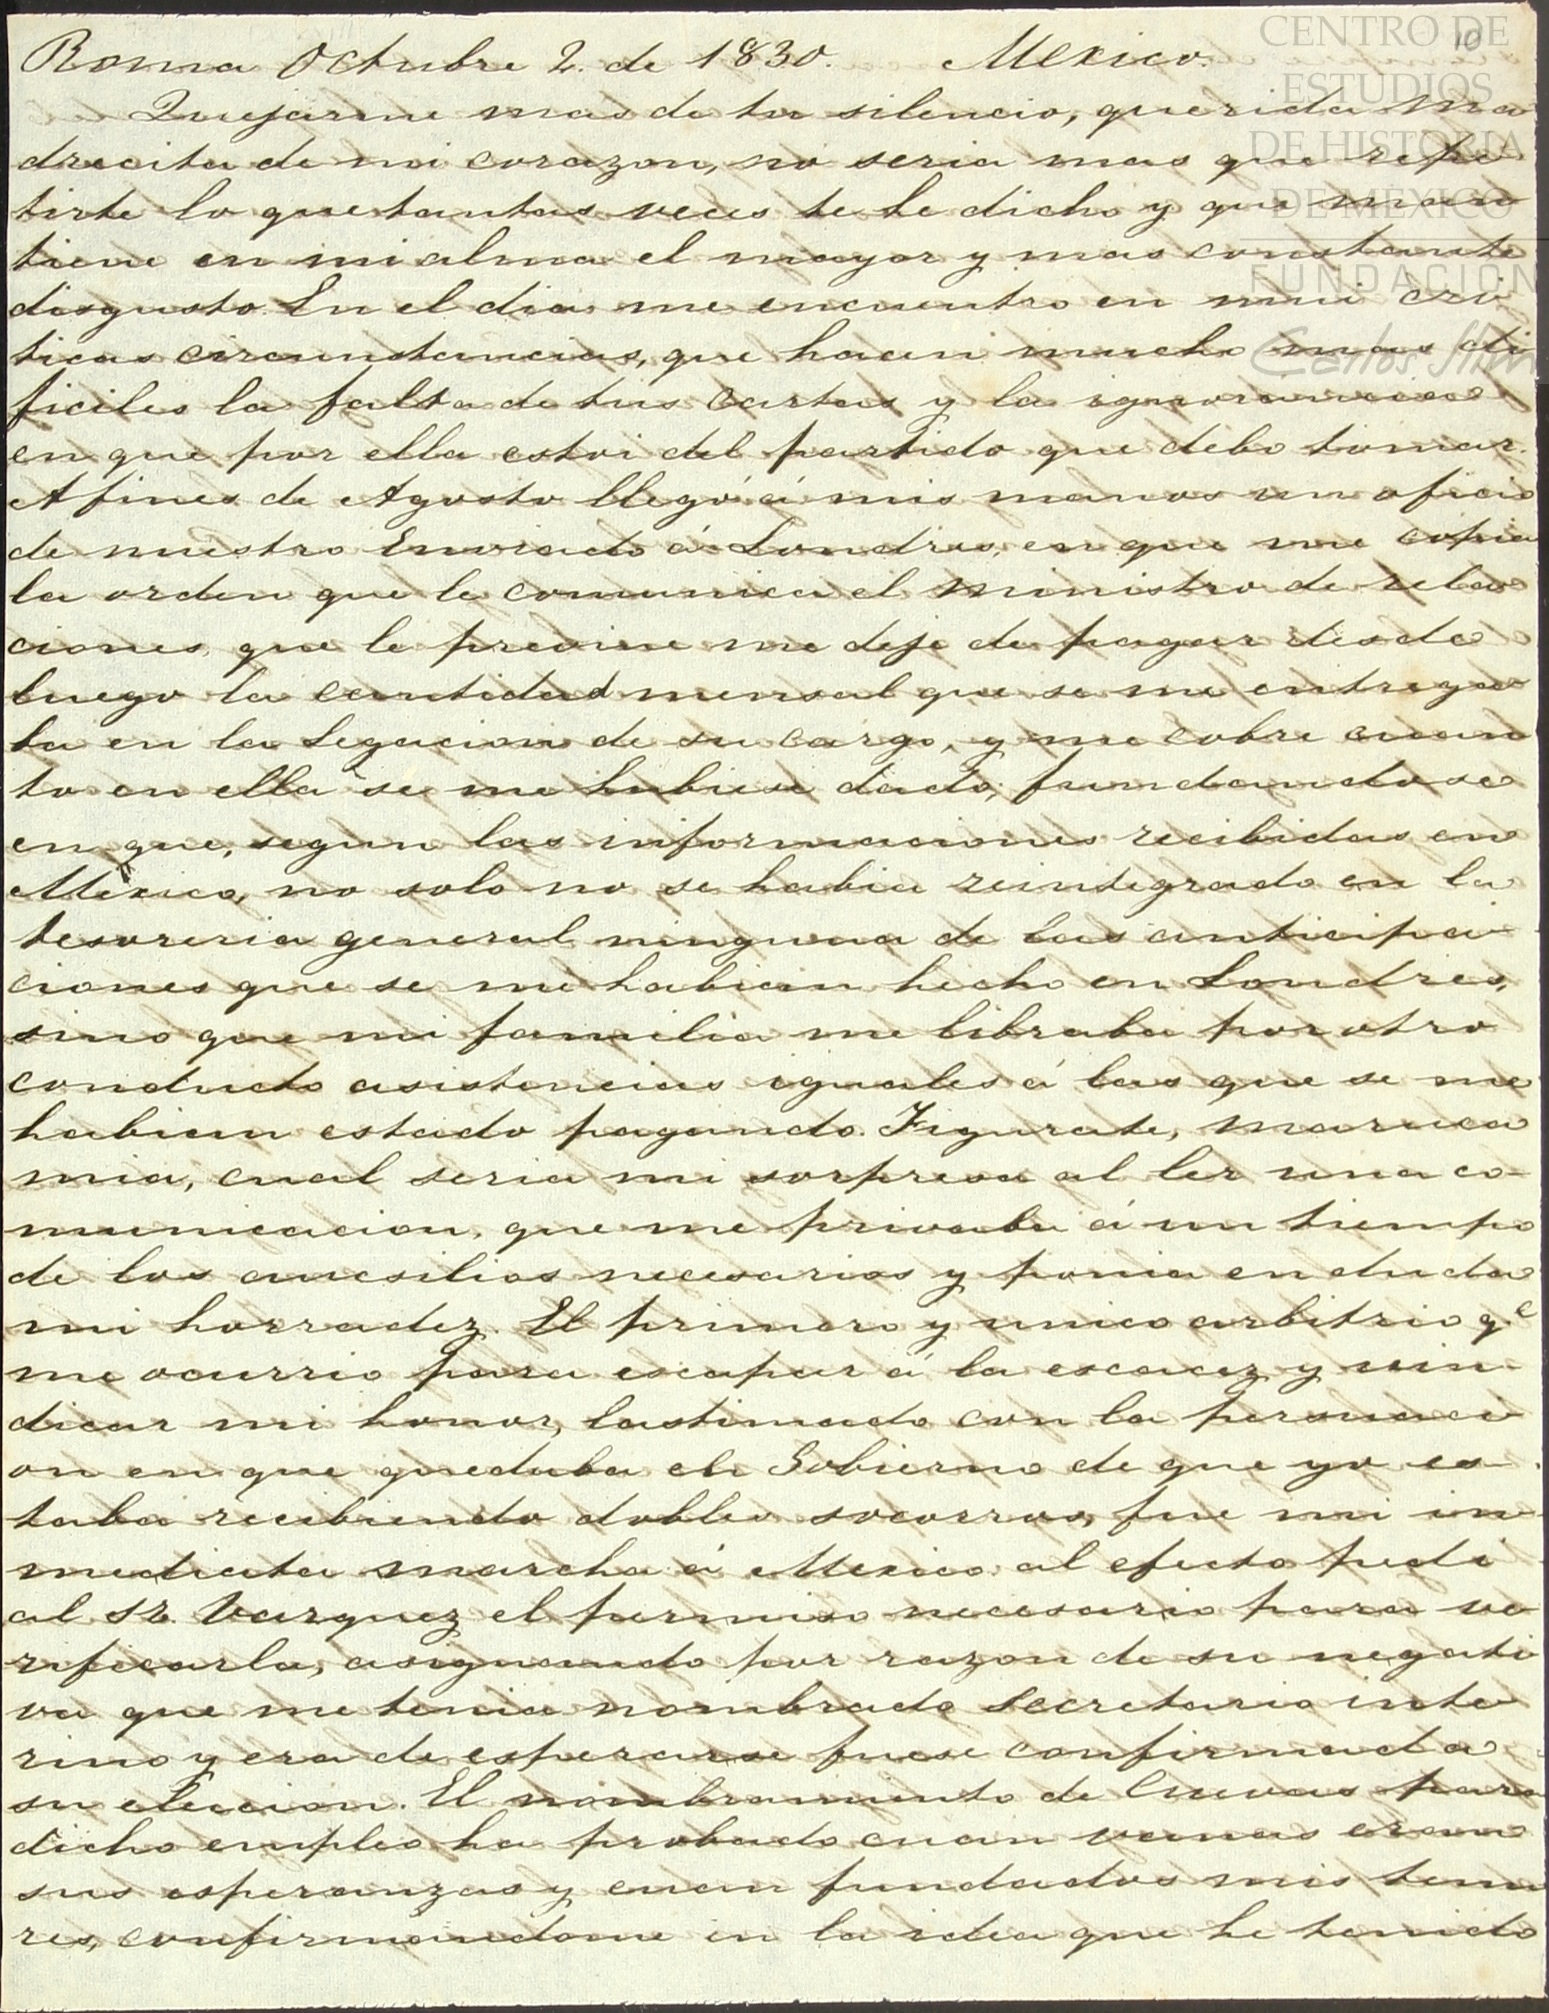 CENTRO DE
ESTUDIOS
DE HISTORIA
DE MÉXICO
FUNDACIÓN
Carlos Slim
10
Roma Octubre 2. de 1830. Mexico.
Quejarme mas de tu silencio, querida ma
drecita de mi corazon, no seria mas que repe
tirte lo que tantas veces te he dicho y que man
tiene en mi alma el mayor y mas constante
disgusto. En el dia me encuentro en mui cri
ticas circunstancias, que hacen mucho mas di
ficiles la falta de tus cartas y la ignorancia
en que por ella estoi del partido que debo tomar.
A fines de Agosto llegó á mis manos un oficio
de nuestro Enviado á Londres, en que me copia
la orden que le comunica el ministro de rela
ciones, que le previene me deje de pagar desde
luego la cantidad mensal que se me entrega
ba en la Legacion de su cargo, y me cobre cuan
to en ella se me hubiese dado, fundandose
en que, segun las informaciones recibidas en
Mexico, no solo no se habia reintegrado en la
tesoreria general ninguna de las anticipa-
ciones que se me habian hecho en Londres,
sino que mi familia me libraba por otro
conducto asistencias iguales á las que se me
habian estado pagando. Figurate, maruca
mia, cual seria mi sorpresa al ler una co-
municacion, que me privaba á un tiempo
de los aucsilios necesarios y ponia en duda
mi horradez. El primero y unico arbitrio qe
me ocurrio para escapar á la escacez y vin-
dicar mi honor, lastimado con la persuaci
on en que quedaba el Gobierno de que yo es-
taba recibiendo dobles socorros, fue mi in-
mediata marcha á Mexico: al efecto pedi
al Sr. Vazquez el permiso necesario para ve
rificarla, asignando por razon de su negati
va que me tenia nombrado Secretario inte
rino y era de esperarse fuese confirmada
su eleccion. El nombramiento de Cuevas para
dicho empleo ha probado cuan vanas eran
sus esperanzas y cuan fundados mis temo
res, confirmandome en la idea que he tenido